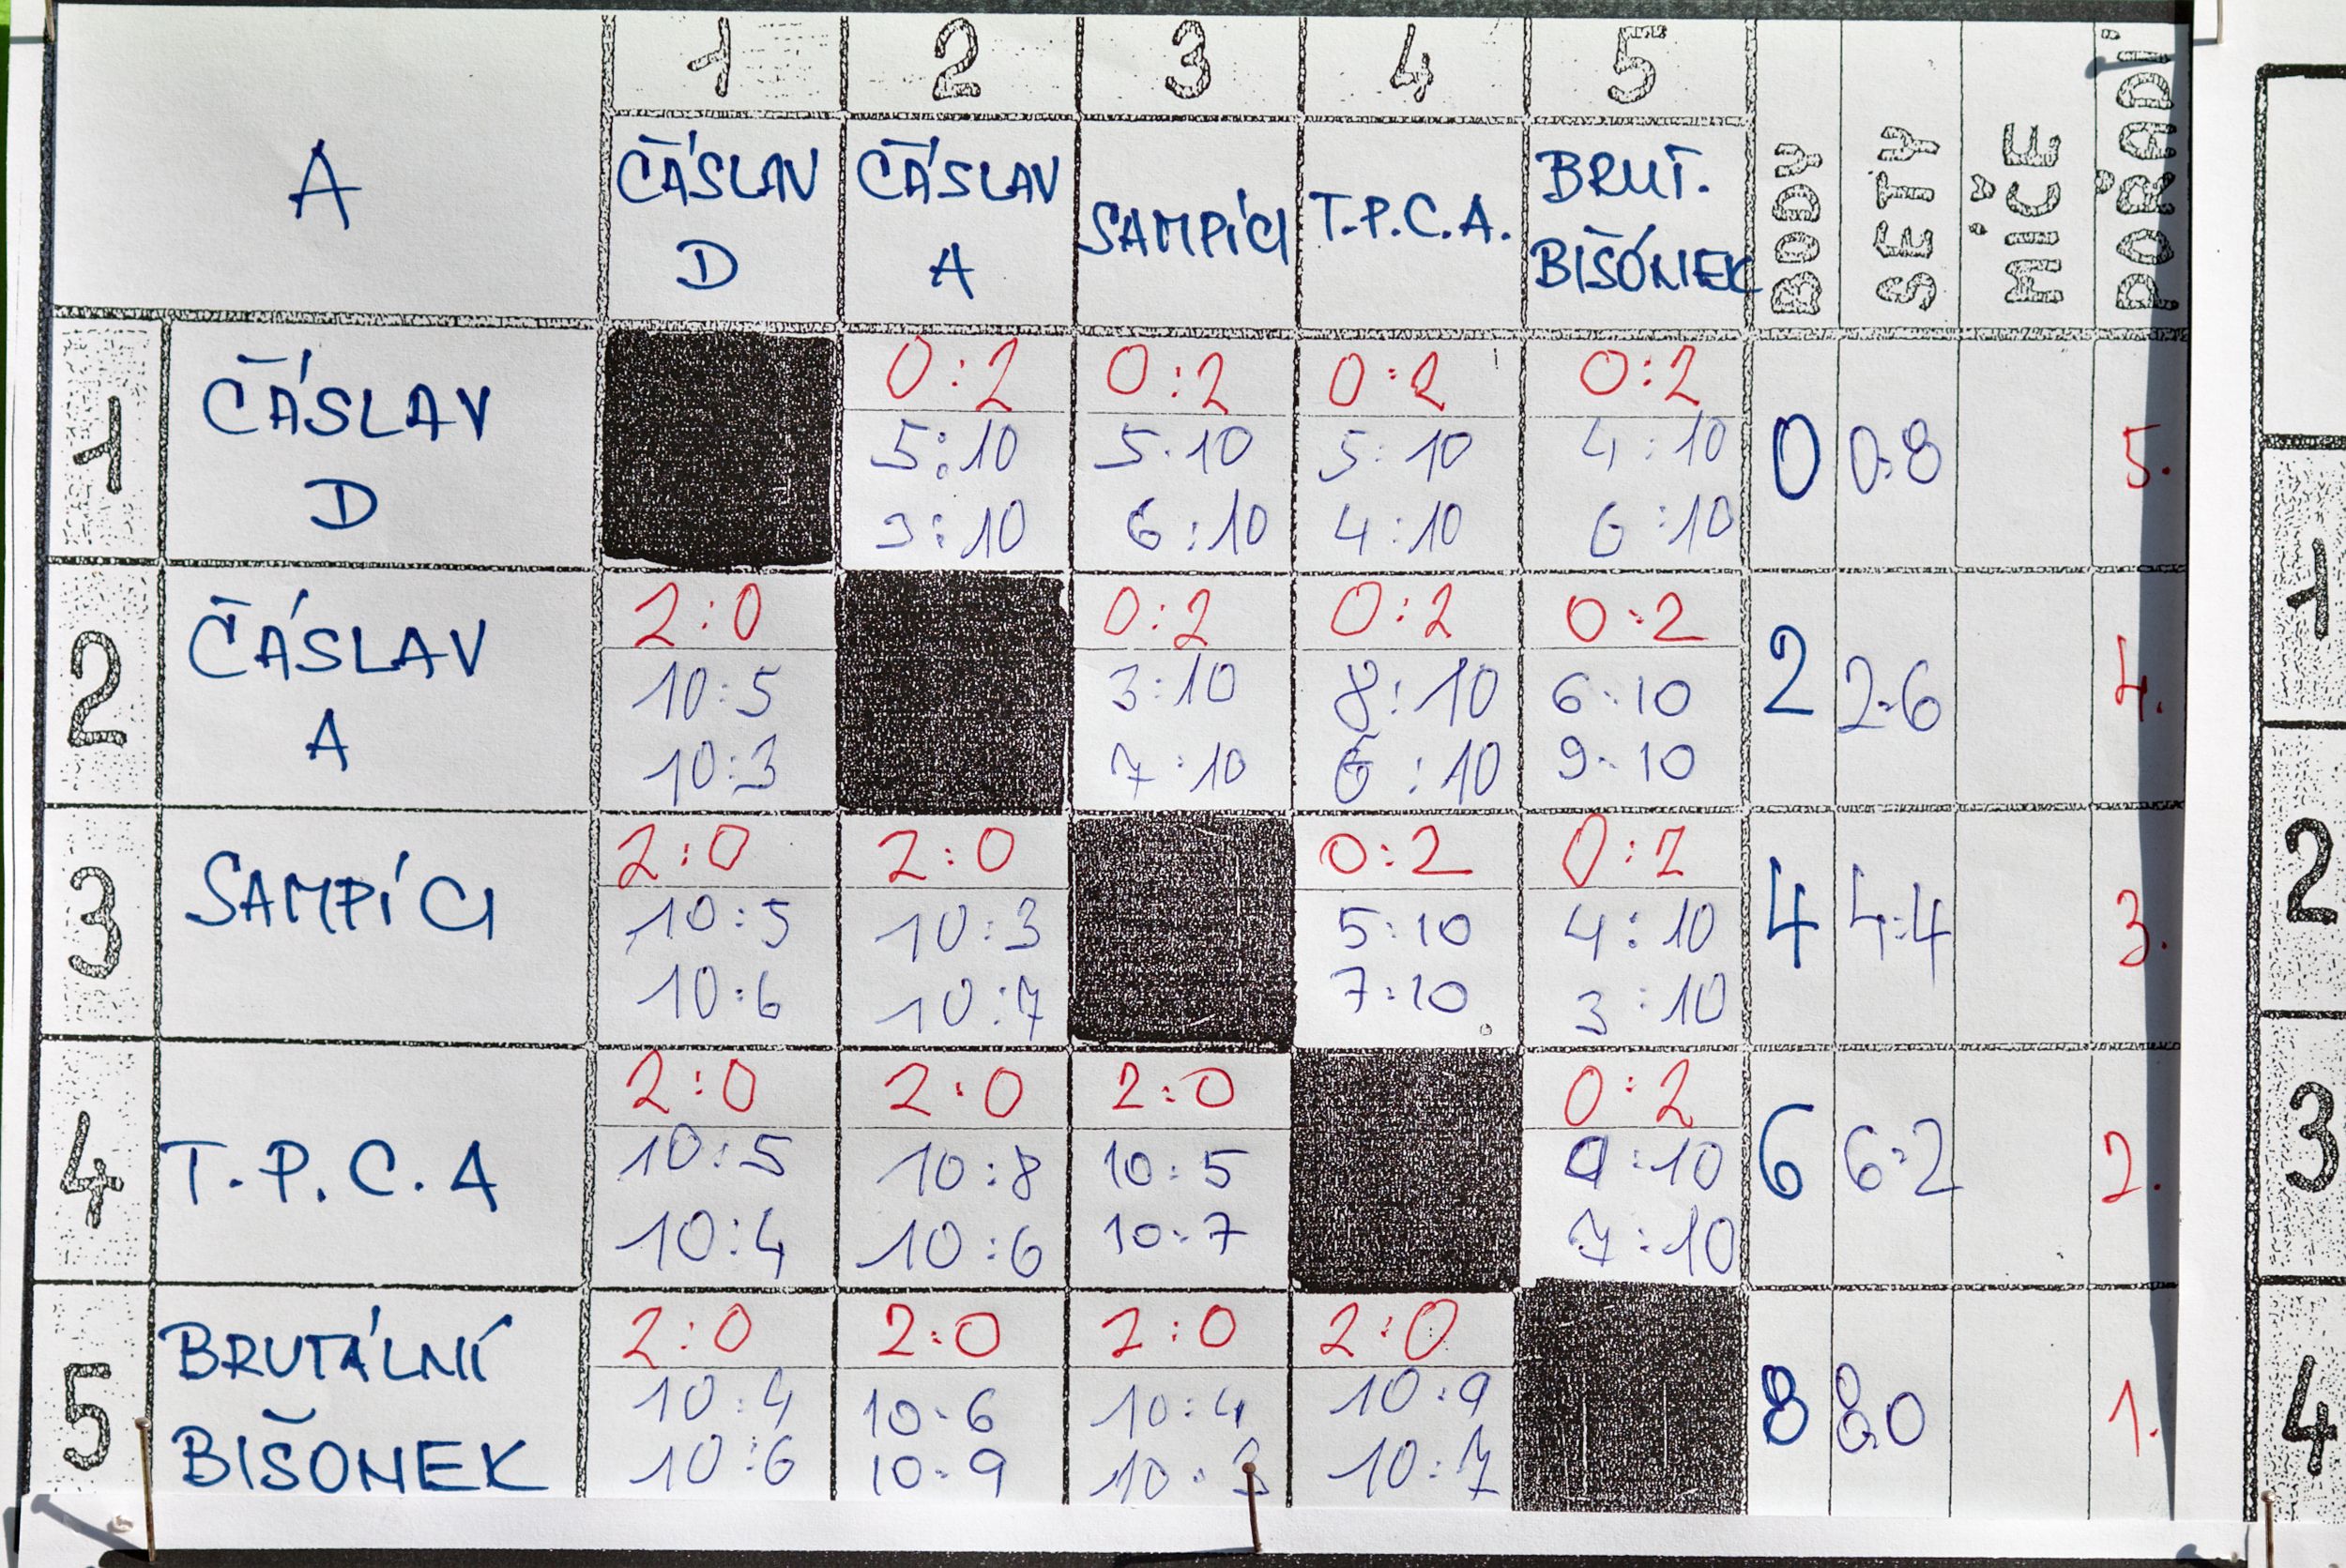 1 2 3 4 5
A ČÁSLAV D ČÁSLAV A SAMPÍCI T.P.C.A. BRUT. BIŠÓNEK BODY SETY MÍČE POŘADÍ
1 ČÁSLAV D 0:2 0:2 0:2 0:2 0 0:8 5.
5:10 5:10 5:10 4:10
3:10 6:10 4:10 6:10
2 ČÁSLAV A 2:0 0:2 0:2 0:2 2 2:6 4.
10:5 3:10 8:10 6:10
10:3 7:10 6:10 9:10
3 SAMPÍCI 2:0 2:0 0:2 0:2 4 4:4 3.
10:5 10:3 5:10 4:10
10:6 10:7 7:10 3:10
4 T.P.C.A 2:0 2:0 2:0 0:2 6 6:2 2.
10:5 10:8 10:5 9:10
10:4 10:6 10:7 7:10
5 BRUTÁLNÍ BIŠONEK 2:0 2:0 2:0 2:0 8 8:0 1.
10:4 10:6 10:4 10:9
10:6 10:9 10:3 10:7
1
2
3
4